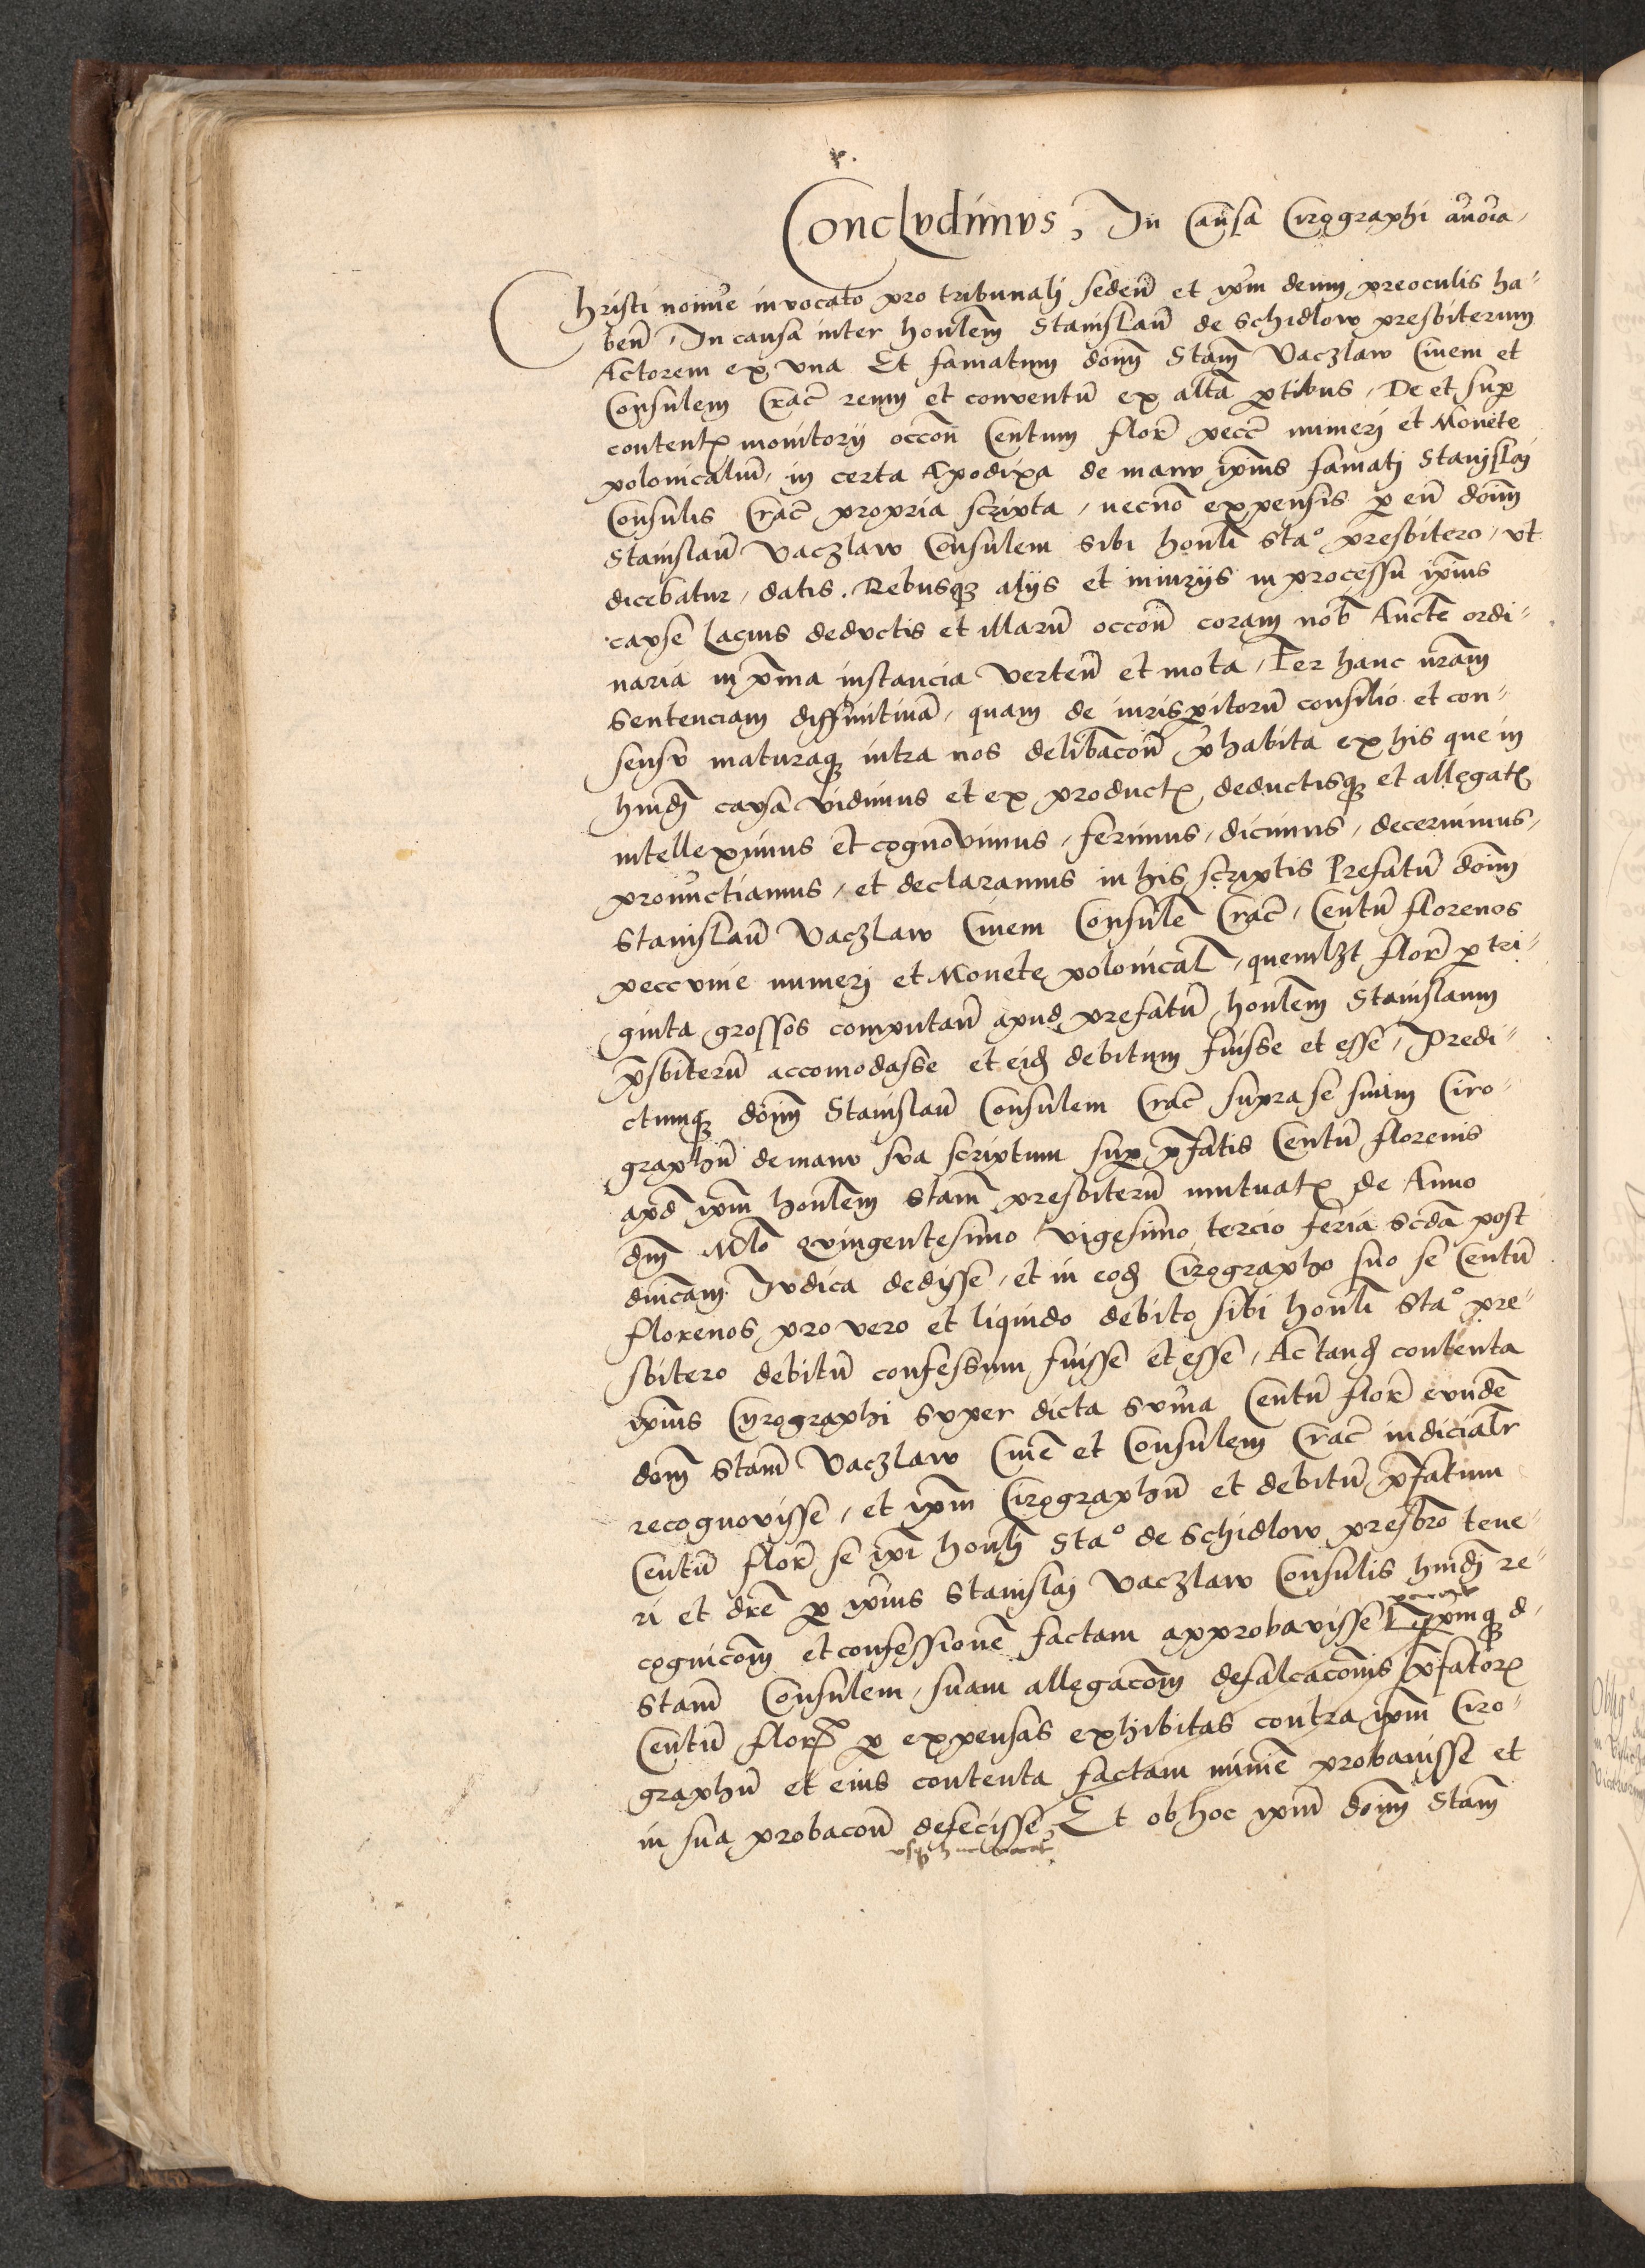 Conclvdimvs, In Causa Cirographi
Christi noīe invocato pro tribunalj sedeñ et ip̄m deum preoculis ha-
beñ, In causa inter honlēm Stanislaū de Schidlow presbiterum
Actorem ex vna Et famatum doīm Stañ Vaczlaw Ciuem et
Consulem Crac̄ reum et conventū ex altā ꝑtibus, De et suꝑ
content̄ monitorij occōn Centum flor̄ pecc̄ numerj et Monete
polonicaliū, in certa Apodixa de manv ip̄ius famatj Stanislaj
Consulis Crac̄ propria scripta, necnō expensis ꝑ eū doīm
Stanislaū Vaczlaw Consulem sibi honlī Staº presbitero, vt
dicebatur, datis. Rebusqꝫ alijs et iniurijs in processu ip̄ius
cavse lacius dedvctis et illarū occōn coram nob̄ Aucte ordi-
naria in p̄ma instancia verteñ et mota, Per hanc nr̄am
Sentenciam diffinitiuā, quam de iurisꝑitorū consilio et con-
sensv maturaqꝫ intra nos delibacōn p̄habita ex his que in
hm̄oḋj cavsa vidimus et ex product̄, deductisqꝫ et allegat̄
intelleximus et cognovimus, ferimus, dicimus, decernimus,
pronūctiamus, et declaramus in his scriptis Prefatū doīm
Stanislaū Vaczlaw Ciuem Consulē Crac̄, Centū florenos
peccvnie numerj et Monete polonical̄, quemlꝫt flor̄ ꝑ tri-
ginta grossos computañ apud prefatū honlēm Stanislaum
p̄sbiterū accomodasse et eiđ debitum fuisse et esse, Predi-
ctumqꝫ doīm Stanislaū Consulem Crac̄ supra se suum Ciro-
graphū de manv sva scriptum suꝑ p̄fatis Centū florenis
apd̄ ip̄m honlēm Stañ presbiterū mutuat̄ de Anno
dn̄j Mlō qvingentesimo vigesimo tercio feria scd̄a post
dn̄icam Ivdica dedisse, et in eođ Cirographo suo se Centū
florenos pro vero et liquido debito sibi honlī Staº pre-
sbitero debitū confessum fuisse et esse, Ac tanđ contenta
ip̄ius Cyrographi svper dicta svm̄a Centū flor̄ evndē
dom̄ Stañ Vaczlaw Ciuē et Consulem Crac̄ iudicialr̄
recognovisse, et ip̄m Cirographū et debitū p̄fatum
Centū flor̄ se ip̄i honlj Staº de Schidlow presbrō tene-
ri et dr̄e ꝑ ip̄ius Stanislaj Vaczlaw Consulis hm̄oḋj re-
cognicōm et confessionē factam approbavisse Ip̄umqꝫ d.
Stañ Consulem, suam allegacōm defalcacōnis p̄fator̄
Centū flor̄ ꝑ expensas exhibitas contra ip̄m Ciro-
graphū et eius contenta factam minīe probauisse et
in sua probacōn defecisse, Et ob hoc ip̄um doīm Stañ
vsqꝫ huc vacat